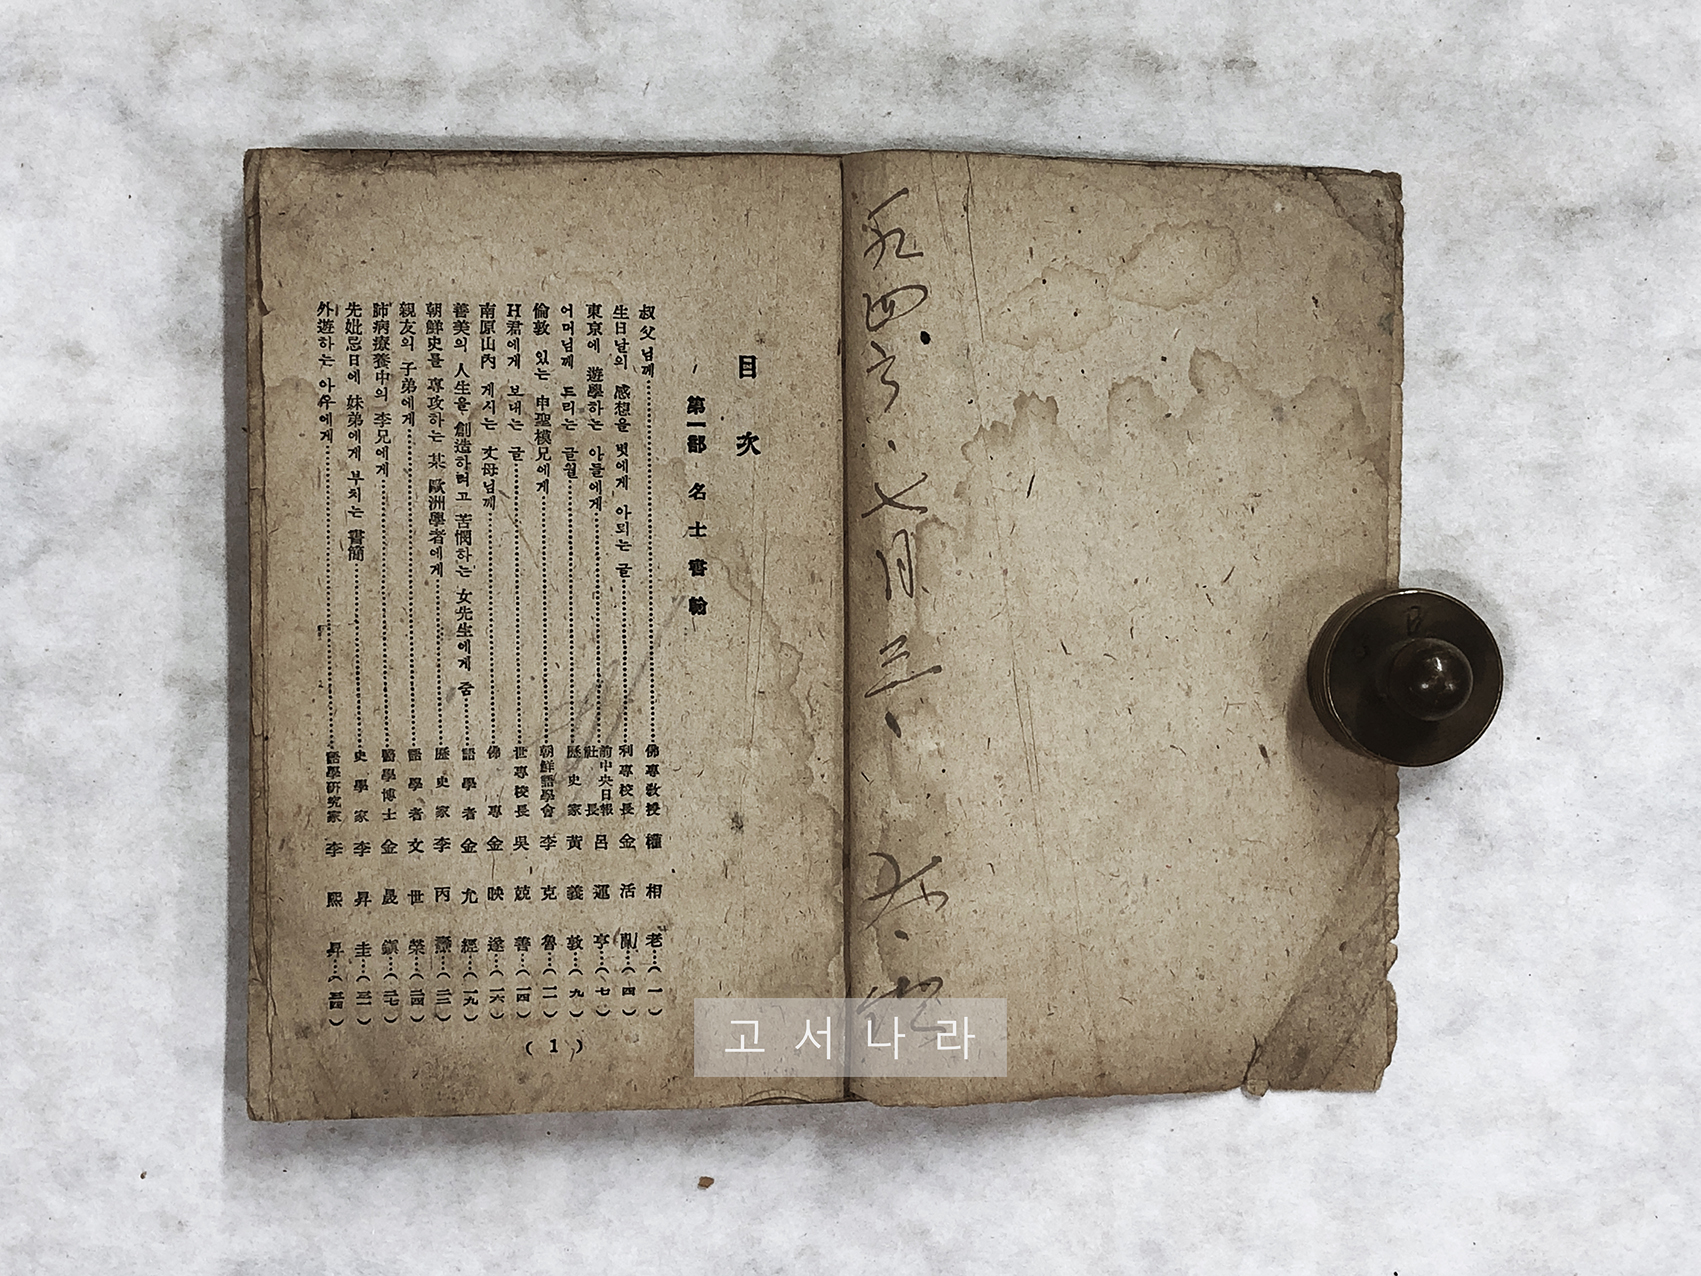 九四六、七月三、
目次
第一部 名士書翰
叔父님께……佛專敎授 權相老…(一)
生日날의 感想을 벗에게 아뢰는 글……利專校長 金活蘭…(四)
東京에 遊學하는 아들에게……前中央日報社長 呂運亨…(七)
어머님께 드리는 글월……歷史家 黃義敦…(九)
倫敦 있는 申聖模兄에게……朝鮮語學會 李克魯…(一二)
H君에게 보내는 글……世專校長 吳兢善…(一四)
南原山內 게시는 丈母님께……佛專 金映遂…(一六)
善美의 人生을 創造하려고 苦憫하는 女先生에게 줌……語學者 金允經…(一九)
朝鮮史를 專攻하는 某 歐洲學者에게……歷史家 李丙燾…(二二)
親友의 子弟에게……語學者 文世榮…(二四)
肺病療養中의 李兄에게……醫學博士 金晟鎭…(二七)
先妣忌日에 妹弟에게 부치는 書簡……史學家 李昇圭…(三一)
外遊하는 아우에게……語學研究家 李熙昇…(三四)
(1)
고서나라